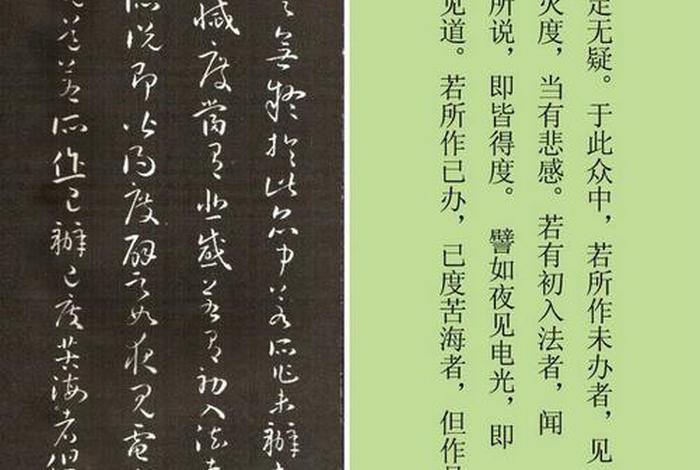 無疑於此眾中若所作未辦
滅度當有悲感若有初入法者
所說即皆得度譬之如夜見電
道若所作已辦已度苦海者但
定无疑。于此众中，若所作未办者，见
灭度，当有悲感。若有初入法者，闻
所说，即皆得度。 譬如夜见电光，即
见道。若所作已办，已度苦海者，但作